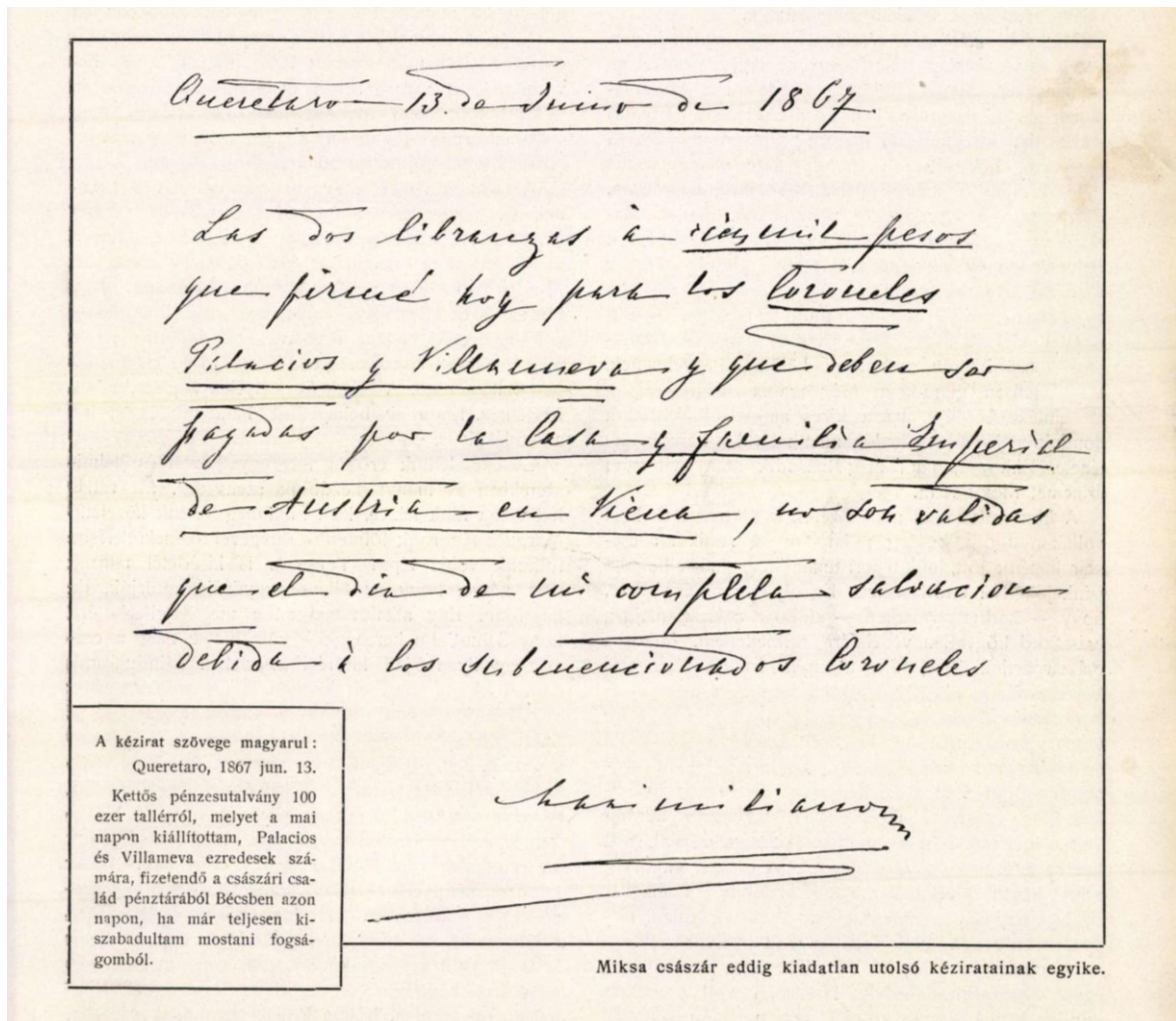 Queretaro 13 de Junio de 1867.
Las dos libranzas à cien mil pesos
que firmé hoy para los Coroneles
Palacios y Villanueva y que deben ser
pagadas por la Casa y familia Imperial
de Austria en Viena, no son validas
que el dia de mi completa salvacion
debida à los submencionados Coroneles
Maximiliano
A kézirat szövege magyarul:
Queretaro, 1867 jun. 13.
Kettős pénzesutalvány 100
ezer tallérról, melyet a mai
napon kiállítottam, Palacios
és Villameva ezredesek szá-
mára, fizetendő a császári csa-
lád pénztárából Bécsben azon
napon, ha már teljesen ki-
szabadultam mostani fogsá-
gomból.
Miksa császár eddig kiadatlan utolsó kéziratainak egyike.